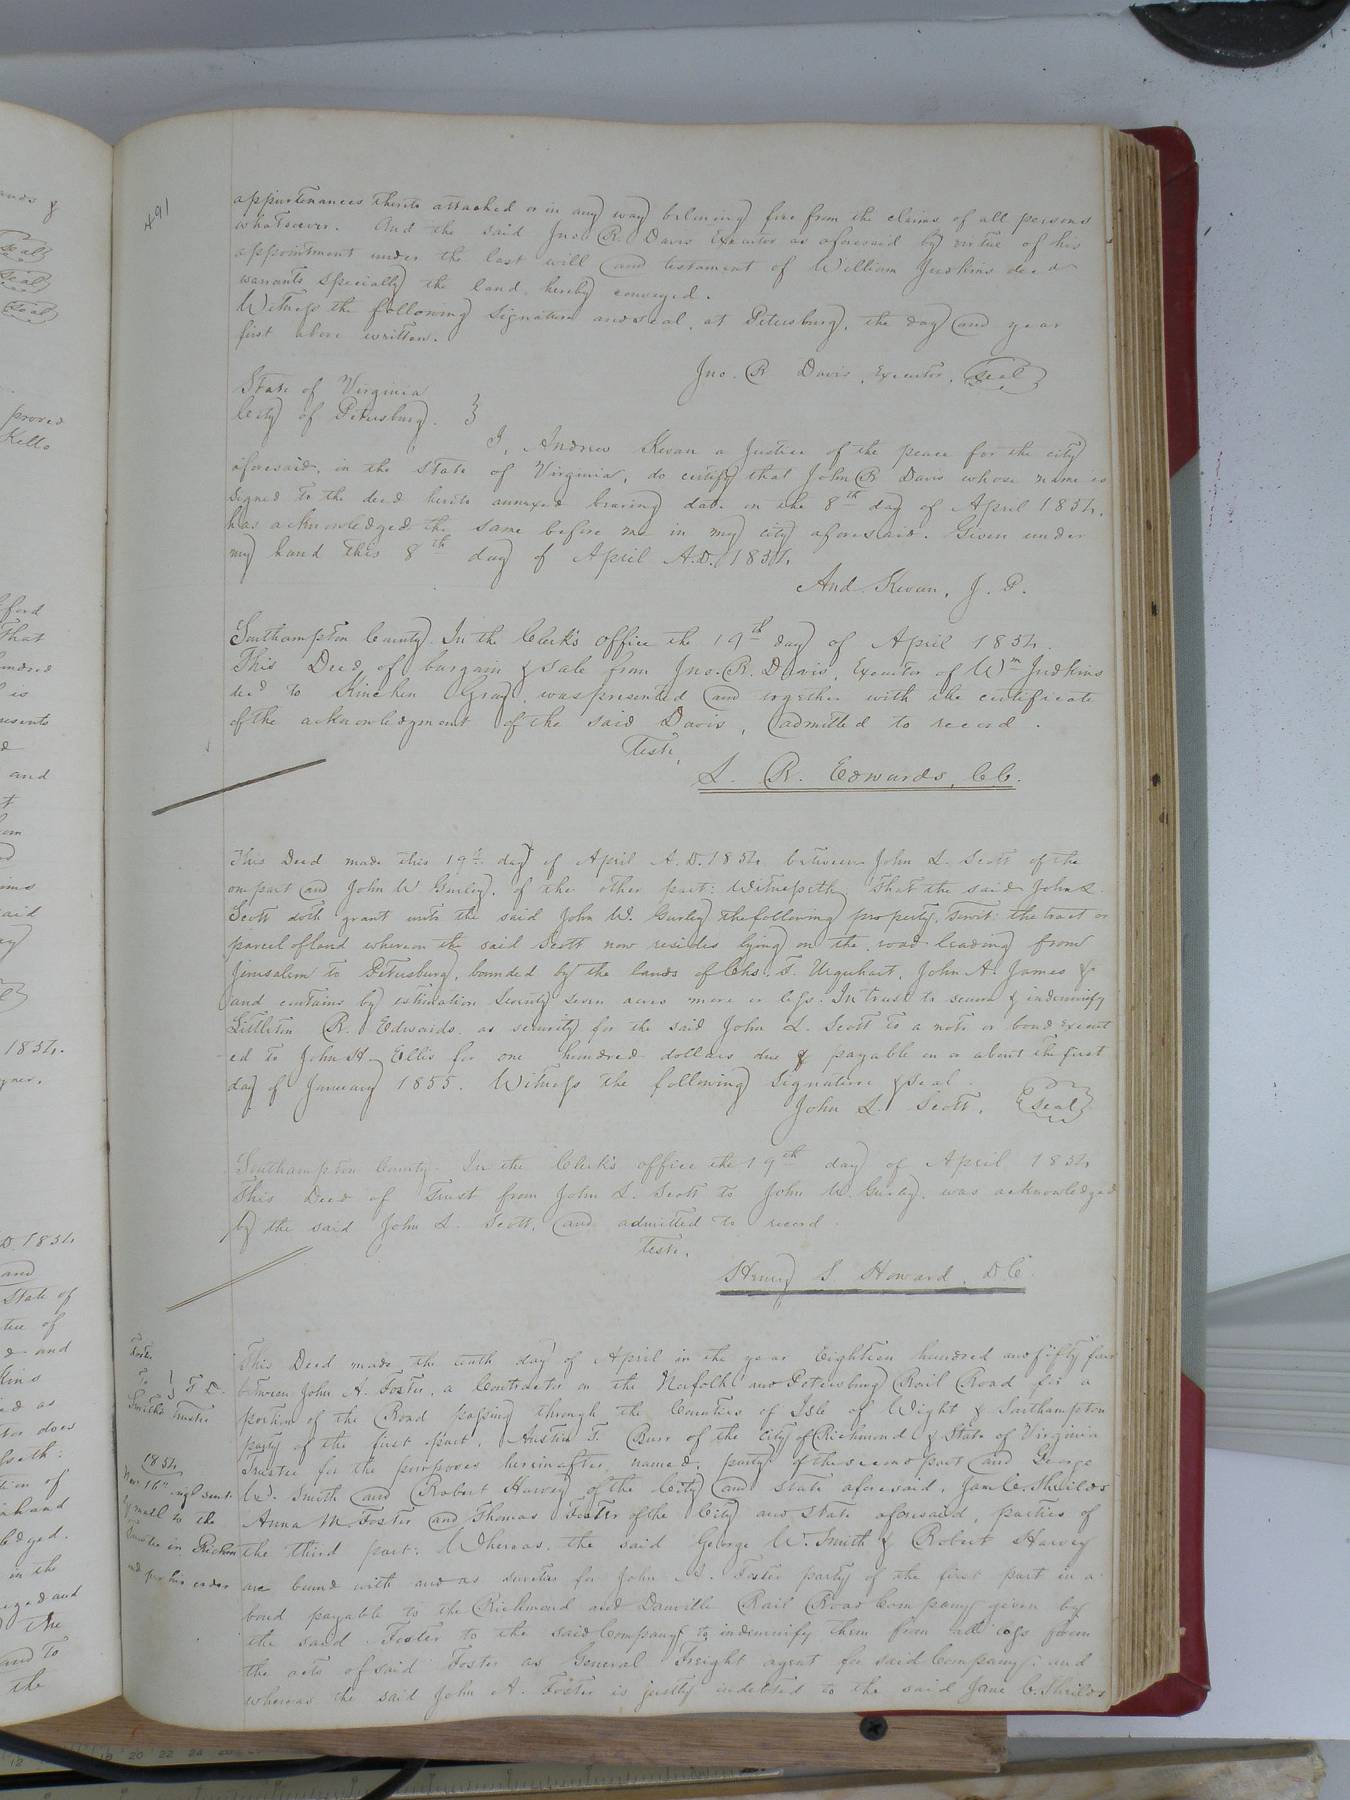 491
appurtenances thereto attached or in any way belonging free from the claims of all persons
whatsoever. And the said Jno. R. Davis Executor as aforesaid by virtue of his
appointment under the last will and testament of William Judkins decd
warrants specially the land hereby conveyed.
Witness the following signature and seal, at Petersburg, the day and year
first above written.
Jno. R Davis, Executor, seal
State of Virginia
City of Petersburg. }
I, Andrew Kevan a Justice of the peace for the city
aforesaid, in the State of Virginia, do certify that John R Davis whose name is
signed to the deed hereto annexed bearing date on the 8th day of April 1854,
has acknowledged the same before me in my city aforesaid. Given under
my hand this 8th day of April A.D. 1854.
And. Kevan, J. P.
Southampton County. In the Clerk's office the 19th day of April 1854.
This Deed of bargain & sale from Jno. R. Davis, Executor of Wm Judkins
decd to Kinchen Gray, was presented and together with the certificate
of the acknowledgment of the said Davis, admitted to record.
Teste,
L. R. Edwards, C.C.
This Deed made this 19th day of April A.D. 1854, between John L. Scott of the
one part and John W Gurley, of the other part: Witnesseth, that the said John L.
Scott doth grant unto the said John W. Gurley the following property, towit: the tract or
parcel of land whereon the said Scott now resides lying on the road leading from
Jerusalem to Petersburg, bounded by the lands of Chs. F. Urquhart, John A. James &
and contains by estimation Seventy seven acres more or less. In trust to secure & indemnify
Littleton R. Edwards as security for the said John L. Scott to a note or bond execut
ed to John H. Ellis for one hundred dollars due & payable on or about the first
day of January 1855. Witness the following signature & seal.
John L. Scott, seal
Southampton County. In the Clerk's office the 19th day of April 1854
This Deed of Trust from John L. Scott to John W. Gurley, was acknowledged
by the said John L. Scott, and admitted to record.
Teste,
Henry S Howard, D C
Foster
To } T. D.
Smith's Trustee
1854
Nov. 16th
by mail to the
Trustee in Richm
and per his order
This Deed made the tenth day of April in the year Eighteen hundred and fifty four
between John A. Foster, a Contractor on the Norfolk and Petersburg Rail Road for a
portion of the Road passing through the Counties of Isle of Wight & Southampton
party of the first part, Austin T. Burr of the City of Richmond & State of Virginia
Trustee for the purposes hereinafter named, party of the second part and George
W. Smith and Robert Harvey of the City and state aforesaid, Jane C. Shields
Anna M. Foster and Thomas Foster of the City and State aforesaid, parties of
the third part: Whereas, the said George W. Smith & Robert Harvey
are bound with and as sureties for John A. Foster party of the first part in a
bond payable to the Richmond and Danville Rail Road Company given by
the said Foster to the said Company to indemnify them from all loss from
the acts of said Foster as General Freight agent for said Company; and
whereas the said John A. Foster is justly indebted to the said Jane C. Shields